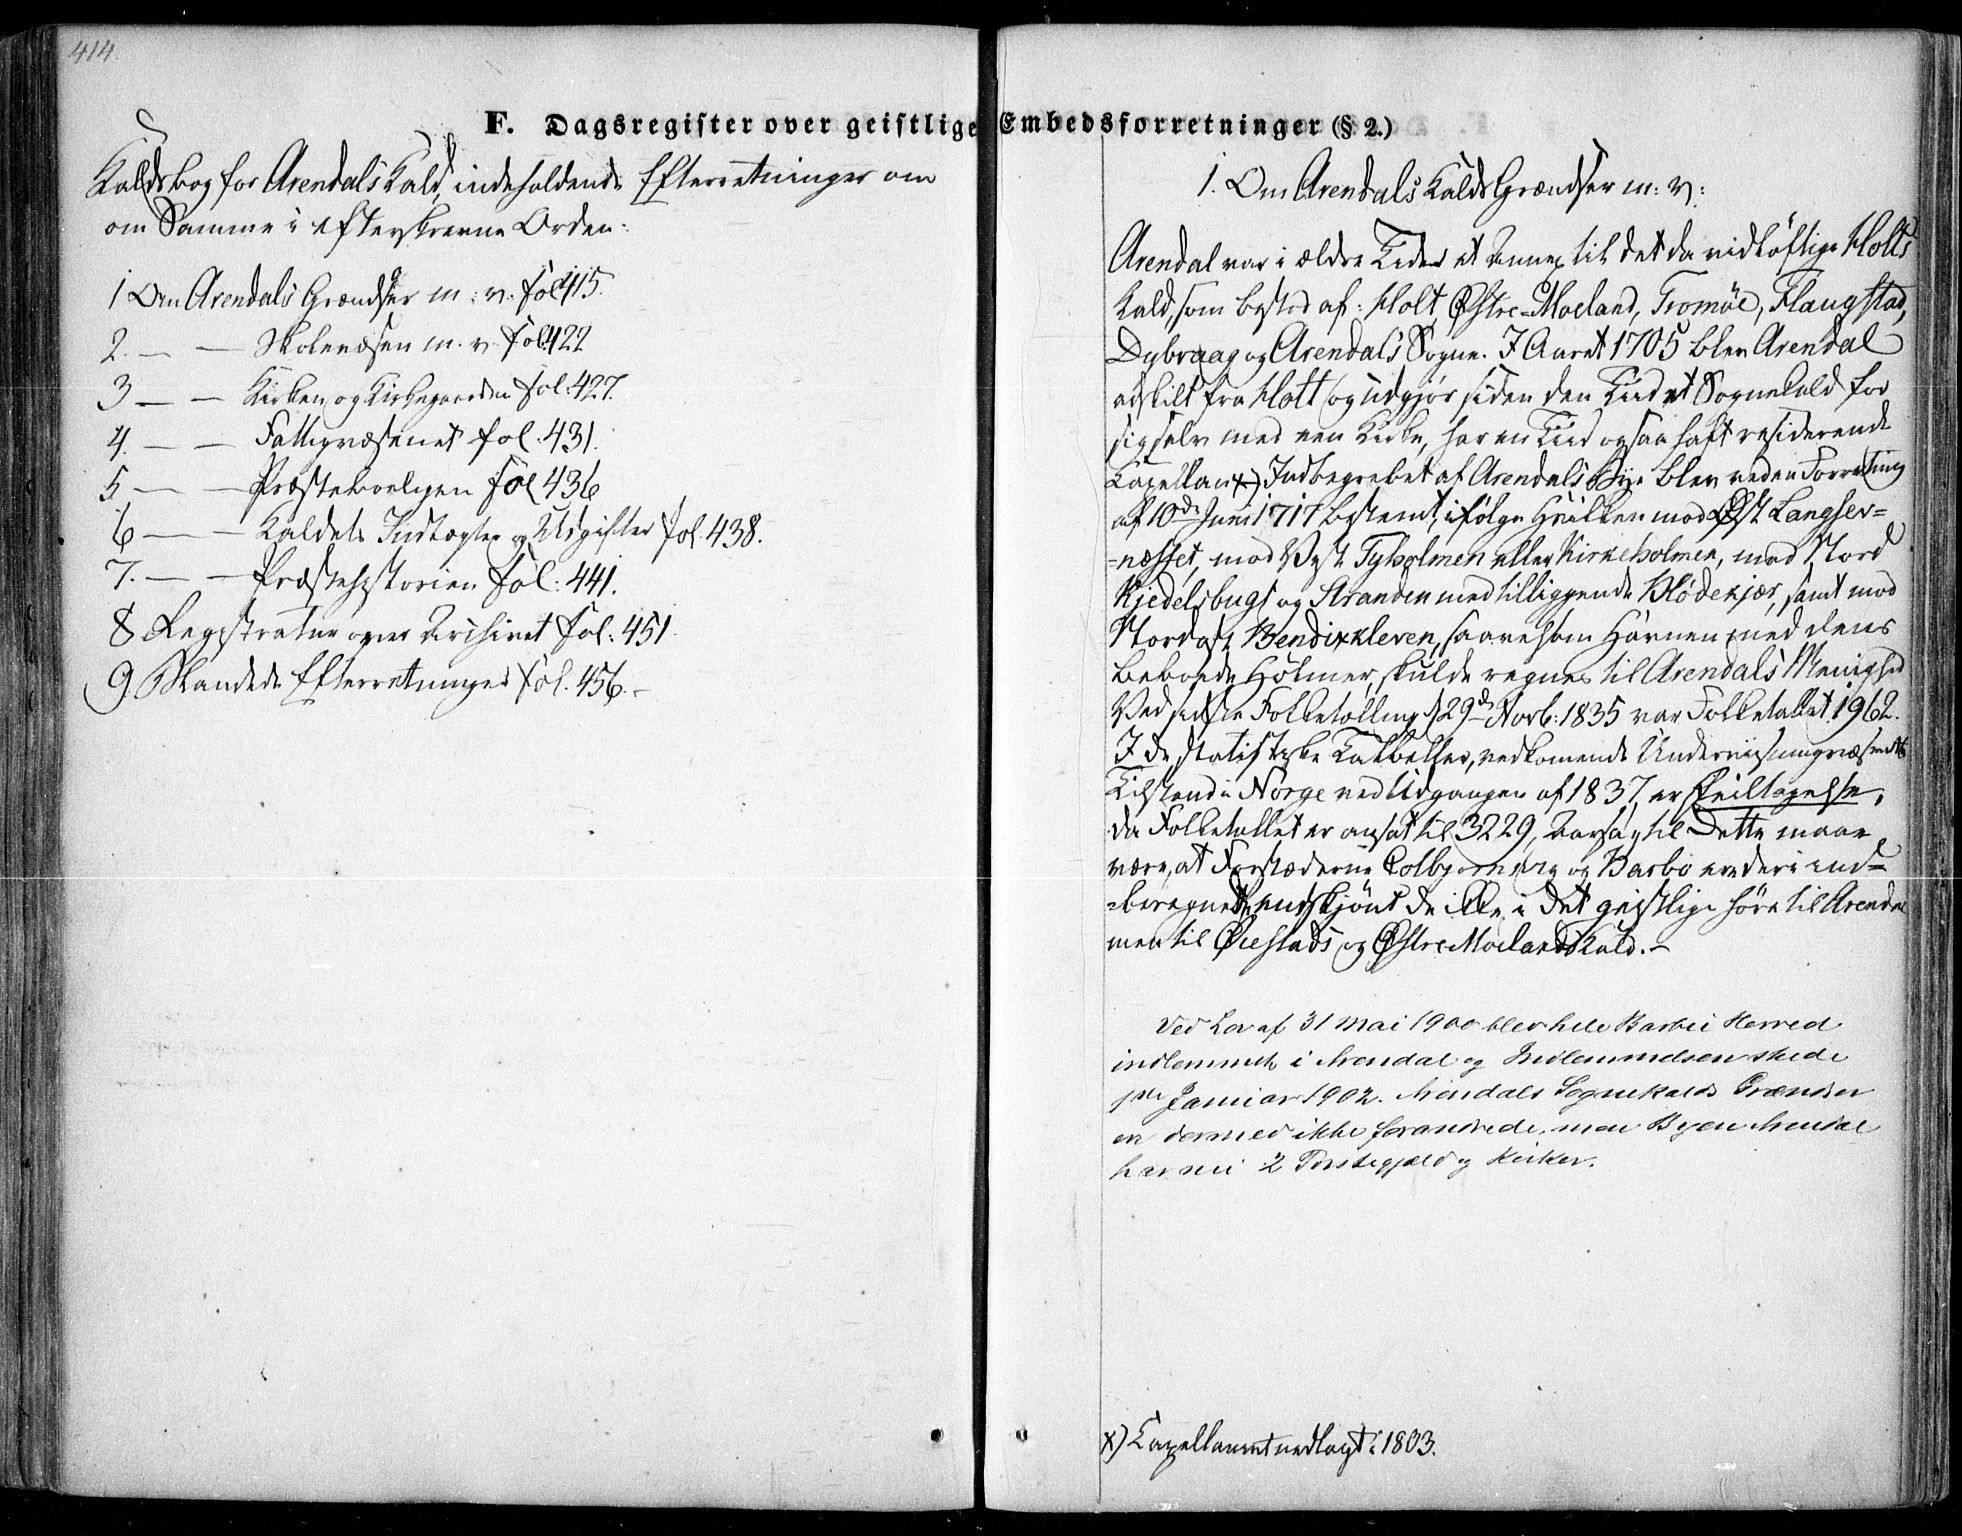 414.
F. Dagsregister over geistlige Embedsforretninger (§ 2.)
Kaldsbog for Arendals Kald, indeholdende Efterretninger om
om Samme i efterskrevne Orden:
1 Om Arendals Grændser m: v. fol 415.
2. — — Skolevæsen m. v. fol 422
3 — — Kirken og Kirkegaarden fol. 427.
4. — — Fattigvæsenet fol. 431.
5 — — Præsteboeligen fol 436
6 — — Kaldets Indtægter og Udgifter fol. 438.
7. — — Præstehistorien fol: 441.
8 Registratur over Archivet fol: 451.
9. Blandede Efterretninger fol. 456. –
1. Om Arendals Kalds Grændser m: v:
Arendal var i ældre Tider et Annex til det da vidtløftige Holts
Kald, som bestod af: Holt, Østre-Moeland, Tromöe, Flaugstad,
Dybvaag og Arendals Sogne. I Aaret 1705 blev Arendal
adskilt fra Holt og udgjør siden den Tiid et Sognekald for
sig selv med een Kirke, har en Tiid ogsaa haft residerende
Capellan x) Indbegrebet af Arendals Bye blev ved en Forretning
af 10de Juni 1717 bestemt, ifølge hvilken mod Øst Langsev-
-næsset, mod Vest Tyholmen eller Kirkeholmen, mod Nord
Kjedelsbugt og Stranden med tilliggende Blödekjær, samt mod
Nordost Bendixkleven, saavelsom Havnen med dens
beboede Holmer, skulde regnes til Arendals Menighed
Ved sidste Folketælling d 29de Novb: 1835 var Folketallet 1962.
I de statistiske Tabeller, vedkomende Underviisningsvæsenets
Tilstand i Norge ved Udgangen af 1837, er Feiltagelse,
da Folketallet er ansat til 3229, Aarsag til Dette maae
være, at Forstæderne Colbjørnsvig og Barbo ere deri ind-
-beregnede, endskjönt de ikke i det geistlige höre til Arendal
men til Øiestads og Østre Moelands Kald. –
Ved Lov af 31 Mai 1900 blev hele Barbu Herred
indlemmet i Arendal og Indlemmelsen skede
1ste Januar 1902. Arendals Sognekalds Grændser
er dermed ikke forandrede, men Byen Arendal
har nu 2 Præstegjeld og Kirker.
x) Capellaniet nedlagt i 1803.